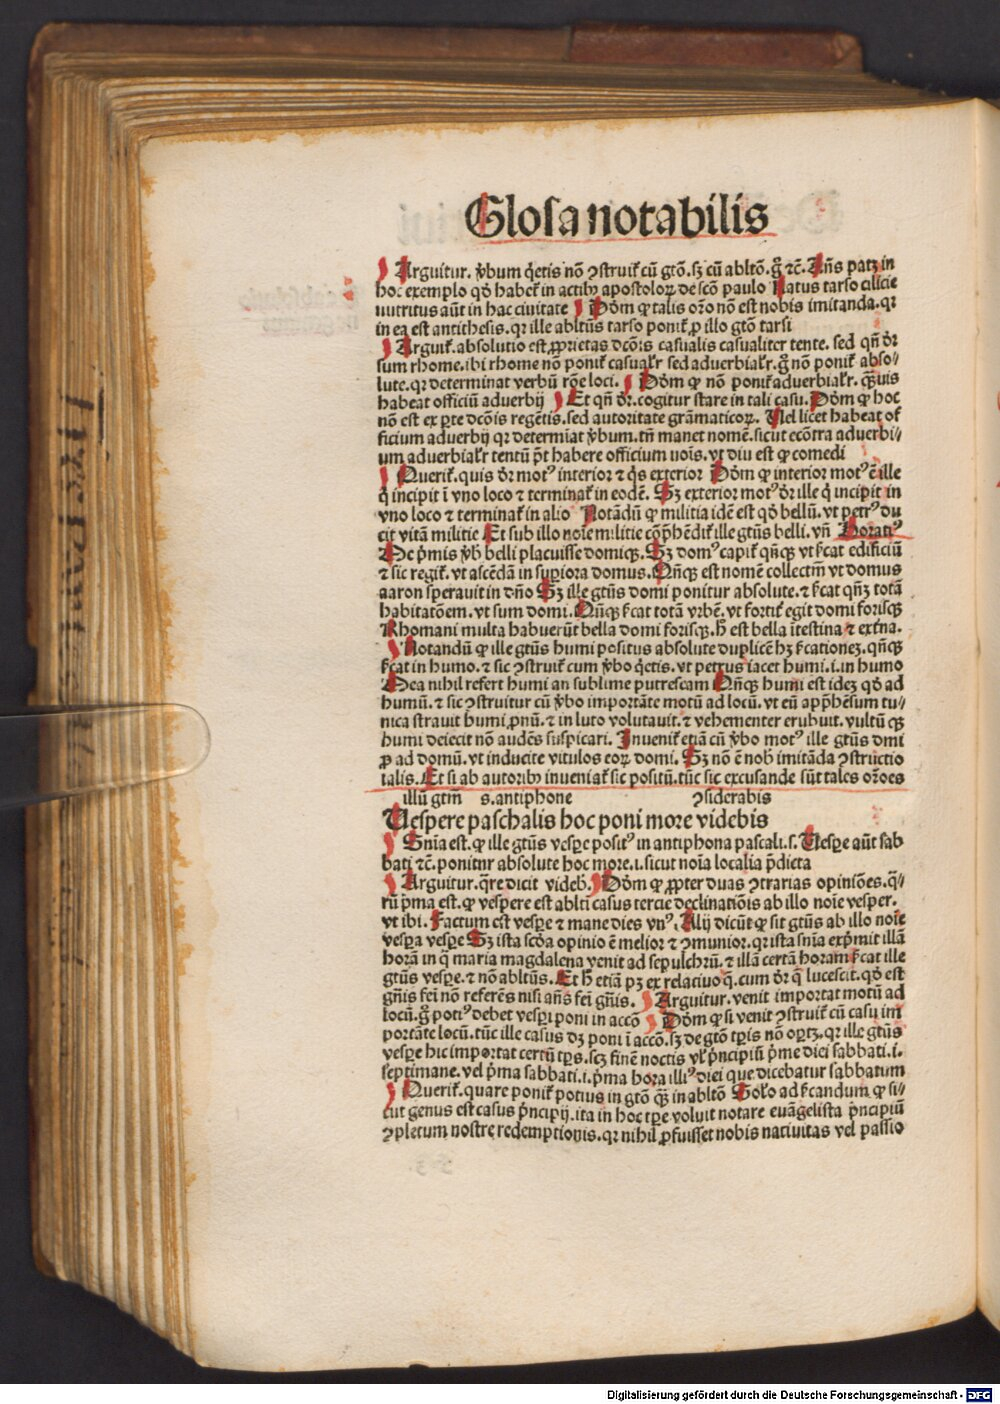 Glosa notabilis
Arguitur. ꝟbum q̇etis nō ꝯstruit̃ cū gtō. sꝫ cū abltō. gͦ ⁊c̃. Añs patꝫ in
hoc exemplo qḋ habet̃ in actibꝰ apostoloꝝ de scō paulo Natus tarso cilicie
nutritus aūt in hac ciuitate Dōm ꝙ talis orō nō est nobis imitanda. qꝛ
in ea est antithesis. qꝛ ille abltūs tarso ponit̃ ꝓ illo gtō tarsi
Arguit̃. absolutio est ꝓprietas dcōis casualis casualiter tente. sed qñ dr̄
sum rhome. ibi rhome nō ponit̃ casualr̃ sed aduerbialr̃. gͦ nō ponit̃ abso⸗
lute. qꝛ determinat verbū rōe loci. Dōm ꝙ nō ponit̃ aduerbialr̃. q̃uis
habeat officiū aduerbij Et qñ dr̄. cogitur stare in tali casu. Dōm ꝙ hoc
nō est ex ꝑte dcōis regētis. sed autoritate grāmaticoꝝ. Vel licet habeat of
ficium aduerbij qꝛ determīat ꝟbum. tñ manet nomē. sicut ecōtra aduerbi⸗
um aduerbialr̃ tentū p̄t habere officium noīs. vt diu est ꝙ comedi
Querit̃. quis dr̄ motꝰ interior ⁊ q̇s exterior Dōm ꝙ interior motꝰ ē ille
q̇ incipit ī vno loco ⁊ terminat̃ in eodē. Sꝫ exterior motꝰ dr̄ ille q̇ incipit in
vno loco ⁊ terminat̃ in alio Notādū ꝙ militia idē est qḋ bellū. vt petrꝰ du
cit vitā militie Et sub illo noīe militie cōp̄hēdit̃ ille gtūs belli. vñ Horatiꝰ
De p̄mis ꝟb belli placuisse domiqꝫ. Sꝫ domꝰ capit̃ qñqꝫ vt ẜcat edificiū
⁊ sic regit̃. vt ascēdā in suꝑiora domus. Qñqꝫ est nomē collectm̄ vt domus
aaron sperauit in dño Sꝫ ille gtūs domi ponitur absolute. ⁊ ẜcat qñꝫ totā
habitatōem. vt sum domi. Qñqꝫ ẜcat totā vrbē. vt fortit̃ egit domi forisqꝫ
Rhomani multa habuerūt bella domi forisqꝫ. h̄ est bella ītestina ⁊ ext̃na.
Notandū ꝙ ille gtūs humi positus absolute duplicē hꝫ ẜcationeꝫ. qñqꝫ
ẜcat in humo. ⁊ sic ꝯstruit̃ cum ꝟbo q̇etis. vt petrus iacet humi. i. in humo
Mea nihil refert humi an sublime putrescam Qñqꝫ humi est ideꝫ qḋ ad
humū. ⁊ sic ꝯstruitur cū ꝟbo importāte motū ad locū. vt eū app̄hēsum tu⸗
nica strauit humi ꝓnū. ⁊ in luto volutauit. ⁊ vehementer erubuit. vultū qꝫ
humi deiecit nō audēs suspicari. Inuenit̃ etiā cū ꝟbo motꝰ ille gtūs dmi
ꝓ ad domū. vt inducite vitulos eoꝝ domi. Sꝫ nō ē nob̄ imitāda ꝯstructio
talis. Et si ab autoribꝰ inueniat̃ sic positū. tūc sic excusande sūt tales orōes
illū gtm̄ s. antiphone ꝯsiderabis
Vespere paschalis hoc poni more videbis
Snīa est. ꝙ ille gtūs vesꝑe positꝰ in antiphona pascali. s. Vesꝑe aūt sab
bati ⁊c̃. ponitur absolute hoc more. i. sicut noīa localia p̄dicta
Arguitur. q̃re dicit videb̄. Dōm ꝙ ꝓpter duas ꝯtrarias opiniōes. q̃⸗
rū p̄ma est. ꝙ vespere est ablti casus tercie declinatiōis ab illo noīe vesper.
vt ibi. Factum est vesꝑe ⁊ mane dies vnꝰ. Alij dicūt ꝙ sit gtūs ab illo noīe
vesꝑa vesꝑe Sꝫ ista scḋa opinio ē melior ⁊ ꝯmunior. qꝛ ista snīa exp̄mit illā
horā in q̃ maria magdalena venit ad sepulchrū. ⁊ illā certā horam ẜcat ille
gtūs vesꝑe. ⁊ nō abltūs. Et h̄ etiā pꝫ ex relatiuo q̄. cum dr̄ q̄ lucescit. qḋ est
gñis fei nō referēs nisi añs fei gñis. Arguitur. venit importat motū ad
locū. gͦ potiꝰ debet vesꝑi poni in accō Dōm ꝙ si venit ꝯstruit̃ cū casu im
portāte locū. tūc ille casus dꝫ poni ī accō. sꝫ de gtō tꝑis nō oꝑtꝫ. qꝛ ille gtūs
vesꝑe hic importat certū tꝑs. scꝫ finē noctis vl̃ p̄ncipiū p̄me diei sabbati. i.
septimane. vel p̄ma sabbati. i. p̄ma hora illiꝰ diei que dicebatur sabbatum
Querit̃. quare ponit̃ potius in gtō q̄ꝫ in abltō Solō ad ẜcandum ꝙ si⸗
cut genus est casus p̄ncipij. ita in hoc tꝑe voluit notare euāgelista p̄ncipiū
ꝯpletum nostrę redemptionis. qꝛ nihil ꝓfuisset nobis natiuitas vel passio
Digitalisierung gefördert durch die Deutsche Forschungsgemeinschaft - DFG